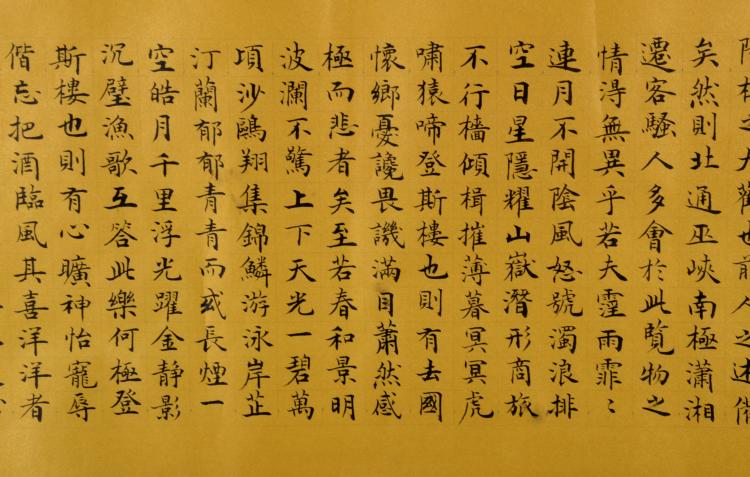 之大觀也前人之述備
矣然則北通巫峽南極瀟湘
遷客騷人多會於此覽物之
情淂無異乎若夫霪雨霏〻
連月不開陰風怒號濁浪排
空日星隱耀山嶽潛形商旅
不行檣傾楫摧薄暮冥冥虎
嘯猿啼登斯樓也則有去國
懷鄉憂讒畏譏滿目蕭然感
極而悲者矣至若春和景明
波瀾不驚上下天光一碧萬
項沙鷗翔集錦鱗游泳岸芷
汀蘭郁郁青青而或長煙一
空皓月千里浮光躍金靜影
沉璧漁歌互答此樂何極登
斯樓也則有心曠神怡寵辱
偕忘把酒臨風其喜洋洋者